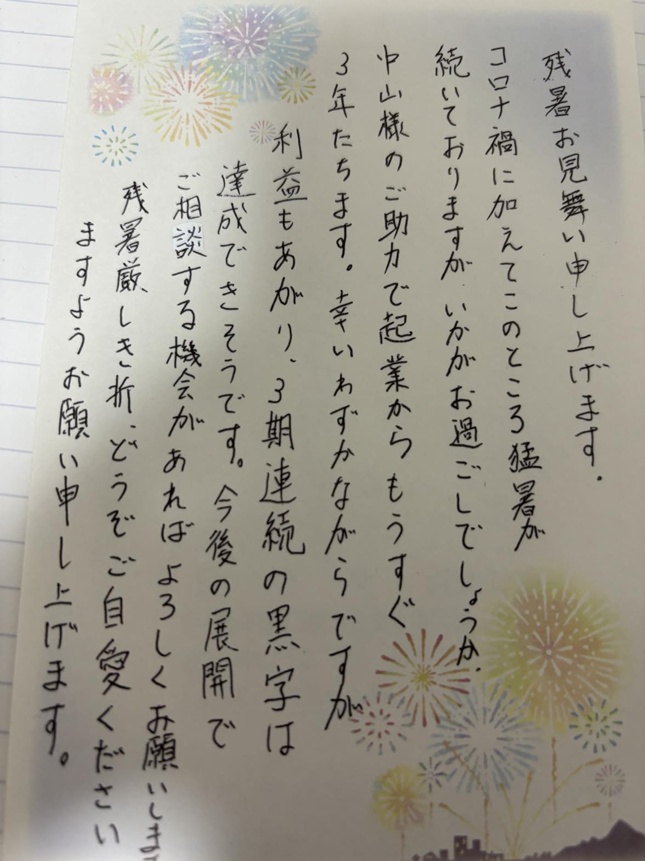 残暑お見舞い申し上げます.
コロナ禍に加えてこのところ猛暑が
続いておりますが.いかがお過ごしでしょうか.
中山様のご助力で起業からもうすぐ
3年たちます。幸いわずかながらですが
利益もあがり、3期連続の黒字は
達成できそうです。今後の展開で
ご相談する機会があればよろしくお願いしま
残暑厳しき折、どうぞご自愛ください
ますようお願い申し上げます。